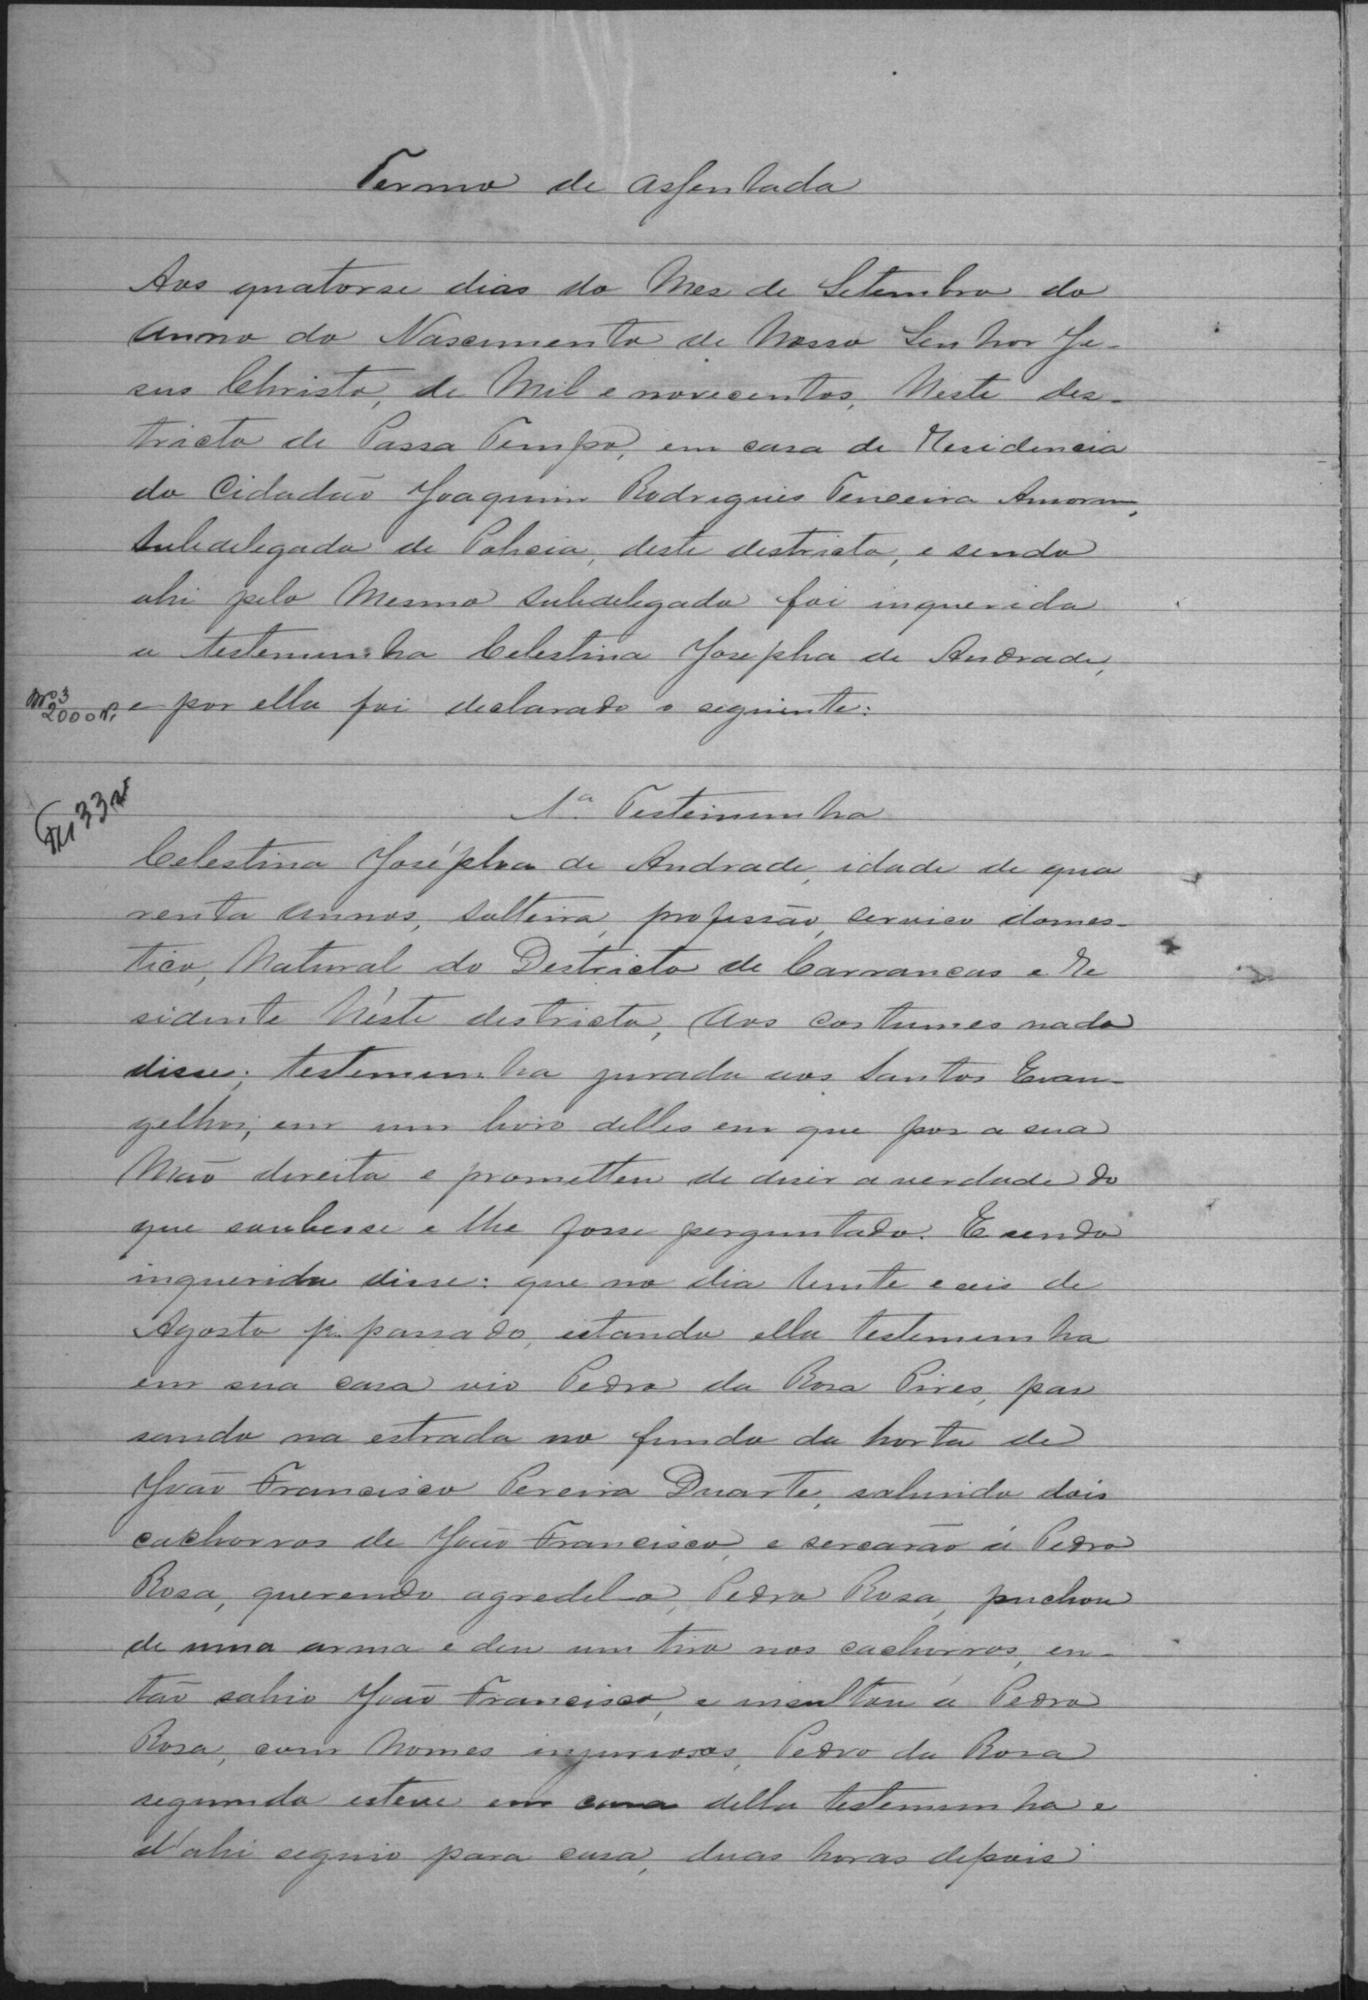 Termo de assentada
Aos quatorse dias do Mes de Setembro do
Anno do Nascimento de Nosso Senhor Je-
sus Christo, de Mil e novecentos, Neste des-
tricto de Passa Tempo, em casa de Residencia
do Cidadão Joaquim Rodrigues Teixeira Amorim,
Subdelegado de Policia, deste destricto, e sendo
ahi pelo Mesmo Subdelegado foi inquerida
a testemunha Celestina Josepha de Andrade,
e por ella foi declarado o seguinte:
2000
33
1ª Testemunha
Celestina Josépha de Andrade, idade de qua
renta annos, solteira, profissão, servico domes-
tico, Natural do Destricto de Carrancas e re
sidente Néste destricto, Aos costumes nada
disse; testemunha jurada aos Santos Evan-
gelhos, em um livro delles em que por a sua
Mão direita e prometteu de diser a verdade do
que soubesse e lhe fosse perguntado. E sendo
inquerida disse: que no dia vinte e seis de
Agosto p. passado, estando ella testemunha
em sua casa vio Pedro da Rosa Pires, pas
sando na estrada no fundo da horta de
João Francisco Pereira Duarte, sahindo dois
cachorros de João Francisco, e sercarão á Pedro
Rosa, querendo agredel-o, Pedro Rosa, puchou
de uma arma e deu um tiro nos cachorros, en-
tão sahio João Francisco, e insultou á Pedro
Rosa, com Nomes injuriosos, Pedro da Rosa
segundo esteve em casa della testemunha e
d'ahi seguio para casa, duas horas depois